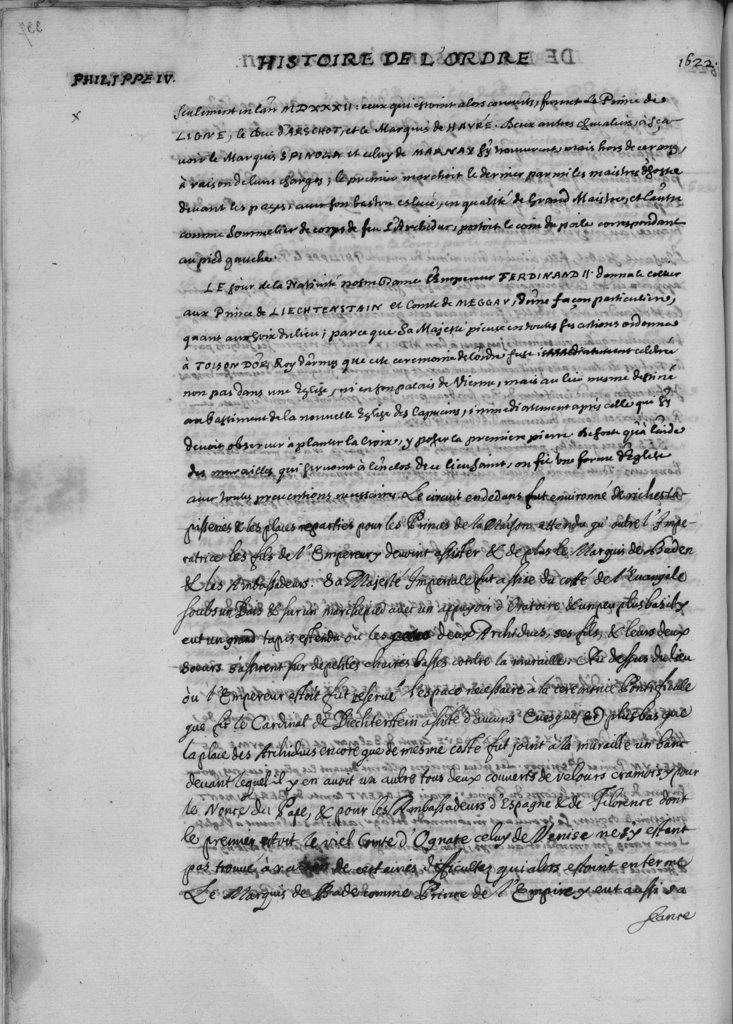 HISTOIRE DE L'ORDRE
1622.
PHILIPPE IV.
x
seulement en l'an MDXXXII: ceux qui estoient alors couverts, furent Le Prince de
LIGNE, le Duc d'ARSCHOT, et le Marquis de HAVRE. Deux autres chevaliers, à sça-
voir le Marquis SPINOLA et celuy de MARNAY s'y trouverent, mais hors de ce rang,
à raison de leurs charges; le premier marchoit le dernier parmi les maistres d'hostel
devant les pages, avec son baston eslevé, en qualité de Grand Maistre, et l'autre
comme Sommelier de corps de feu l'Archiduc, portoit le coin du poile correspondant
au pied gauche.
LE jour de la Nativité nostre Dame l'Empereur FERDINAND II. donna le collier
aux Prince de LIECHTENSTAIN et Comte de MEGGAV, d'une façon particuliere,
quant au choix du lieu; parce que Sa Majesté pieuse en toutes ses actions ordonna
à TOISON D'OR, Roy d'armes que cete ceremonie de l'ordre fusse celebrée
non pas dans une Eglise, ni en son palais de Vienne, mais au lieu mesme destiné
au bastiment de la nouvelle Eglise des Capucins, immediatement après celle qui s'y
devoit observer à planter la Croix, y poser la premiere pierre. De sorte qu'à l'aide
des murailles qui servoint à l'enclos de ce lieu saint, on fit une forme d'Eglise
avec toutes preventions necessaires. Le circuit en dedans fut environné de riches ta-
pisseries & les places reparties pour les Princes de la Maison, attendu qu'outre l'Impe-
ratrice les fils de l'Empereur y devoint assister & de plus le Marquis de Baden
& les Ambassadeurs. Sa Majesté Imperiale fut assise du costé de l'Evangile
soubs un Dais & sur un marchepied avec un appuyoir d'Oratoire & un peu plus bas il y
eut un grand tapis estendu où les deux Archiducs, ses fils, & leurs deux
soeurs s'assirent sur de petites chaires basses contre la muraille. Au dessus du lieu
où l'Empereur estoit fut reservé l'espace necessaire à la ceremonie Pontificale
que fit le Cardinal de Diechterstein assisté d'aucuns Evesques et plus bas que
la place des Archiducs encore que de mesme costé fut joint à la muraille un banc
devant lequel il y en avoit un autre tous deux couverts de velours cramoisy pour
le Nonce du Pape, & pour les Ambassadeurs d'Espagne & de Florence dont
le premier estoit le viel Comte d'Ognate celuy de Venise ne s'y estant
pas trouvé, à raison de certaines difficultez qui alors estoint en terme
Le Marquis de Bade comme Prince de l'Empire y eut aussi sa
seance